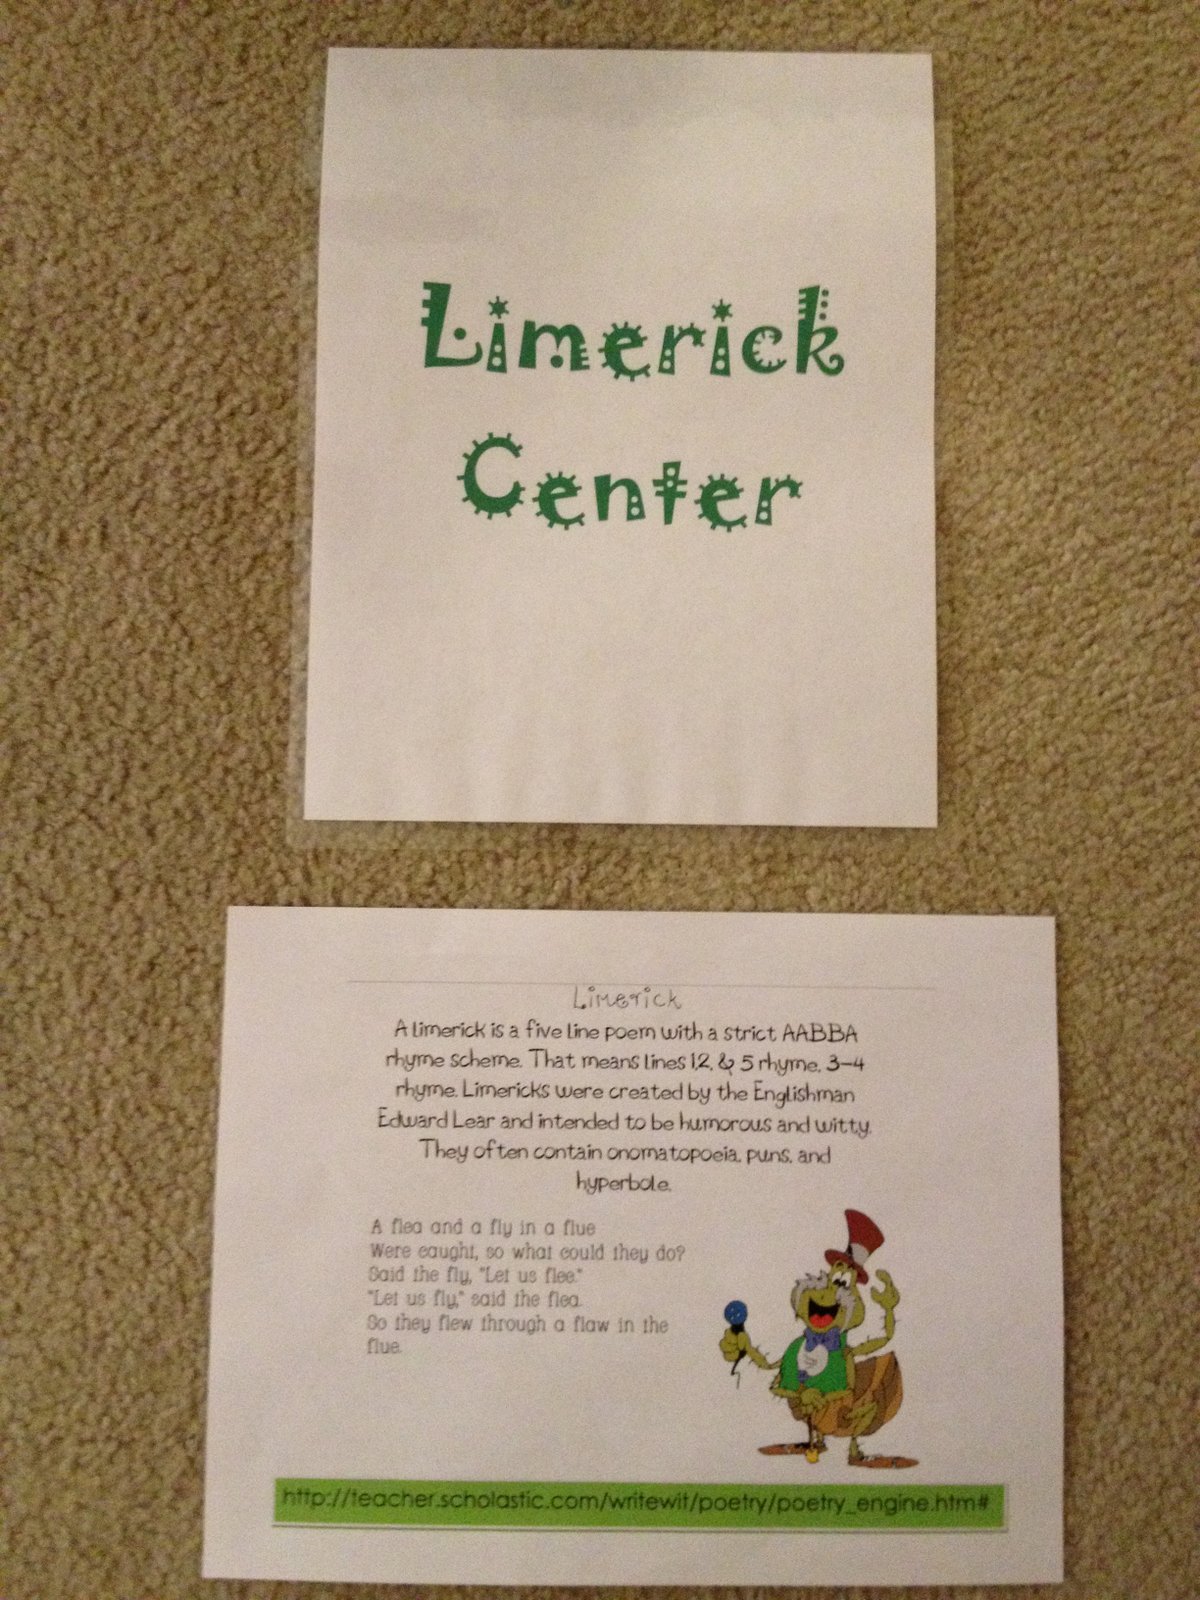 Limerick
Center
Limerick
A limerick is a five line poem with a strict AABBA
rhyme scheme. That means lines 1,2, & 5 rhyme, 3-4
rhyme. Limericks were created by the Englishman
Edward Lear and intended to be humorous and witty.
They often contain onomatopoeia, puns, and
hyperbole.
A flea and a fly in a flue
Were caught, so what could they do?
Said the fly, "Let us flee."
"Let us fly," said the flea.
So they flew through a flaw in the
flue.
http://teacher.scholastic.com/writewit/poetry/poetry_engine.htm#